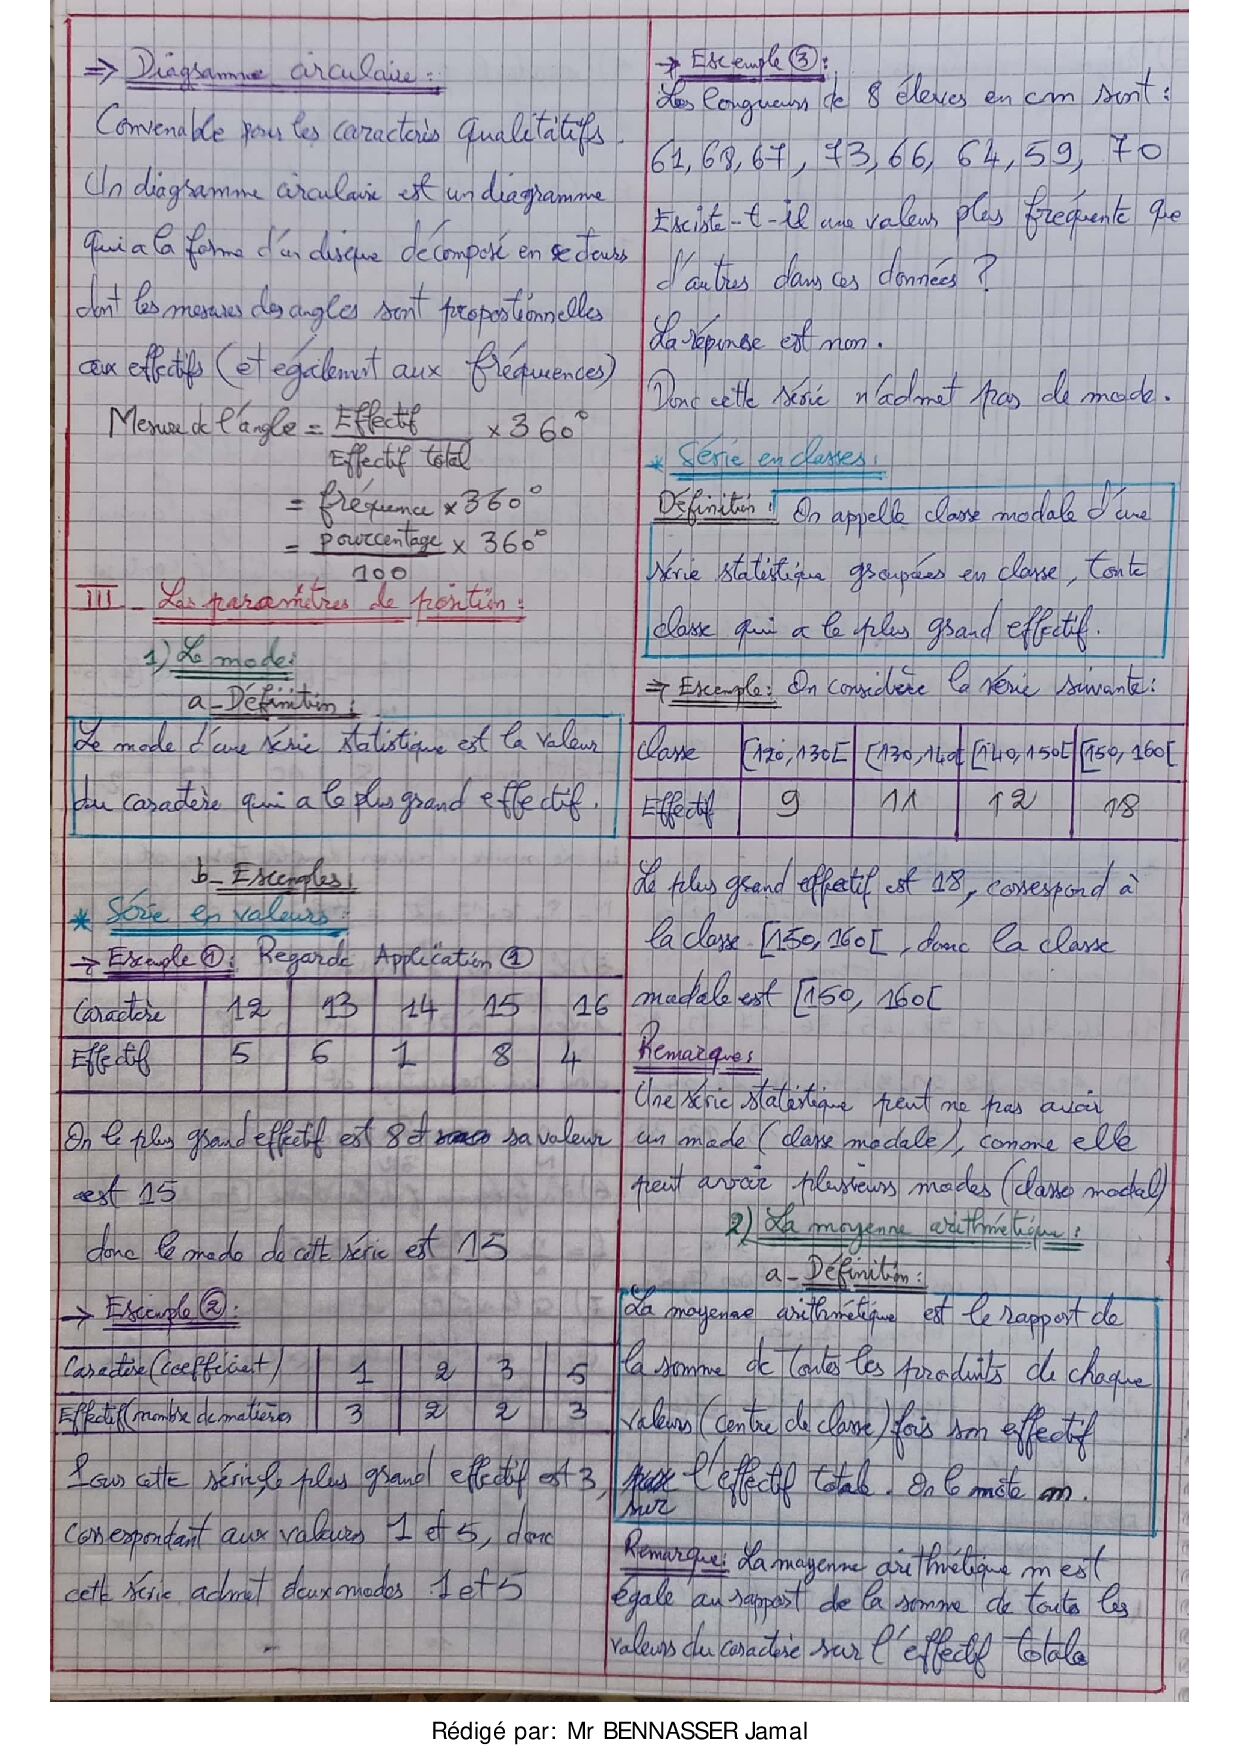 ⇒ Diagramme circulaire :
Convenable pour les caractères qualitatifs.
Un diagramme circulaire est un diagramme
qui a la forme d'un disque décomposé en secteurs
dont les mesures des angles sont proportionnelles
aux effectifs (et également aux fréquences)
Mesure de l'angle = Effectif / Effectif total × 360°
= fréquence × 360°
= pourcentage / 100 × 360°
III - Les paramètres de position :
1) Le mode :
a - Définition :
Le mode d'une série statistique est la valeur
du caractère qui a le plus grand effectif.
b - Exemples :
* Série en valeurs :
→ Exemple ① : Regarde Application ①
Caractère 12 13 14 15 16
Effectif 5 6 1 8 4
On le plus grand effectif est 8 et sa valeur
est 15
donc le mode de cette série est 15
→ Exemple ② :
Caractère (coefficient) 1 2 3 5
Effectif (nombre de matières 3 2 2 3
Pour cette série, le plus grand effectif est 3,
correspondant aux valeurs 1 et 5, donc
cette série admet deux modes 1 et 5
→ Exemple ③ :
Les longueurs de 8 éleves en cm sont :
61, 68, 67, 73, 66, 64, 59, 70
Existe-t-il une valeur plus fréquente que
d'autres dans ces données ?
La réponse est non.
Donc cette série n'admet pas de mode.
* Série en classes :
Définition : On appelle classe modale d'une
série statistique groupées en classe, toute
classe qui a le plus grand effectif.
⇒ Exemple : On considère la série suivante :
Classe [120, 130[ [130, 140[ [140, 150[ [150, 160[
Effectif 9 11 12 18
Le plus grand effectif est 18, correspond à
la classe [150, 160[, donc la classe
modale est [150, 160[
Remarque :
Une série statistique peut ne pas avoir
un mode (classe modale), comme elle
peut avoir plusieurs modes (classe modal)
2) La moyenne arithmétique :
a - Définition :
La moyenne arithmétique est le rapport de
la somme de toutes les produits de chaque
valeurs (centre de classe) fois son effectif
sur l'effectif total. On le note m.
Remarque : La moyenne arithmétique m est
égale au rapport de la somme de toutes les
valeurs du caractère sur l'effectif totale
Rédigé par: Mr BENNASSER Jamal